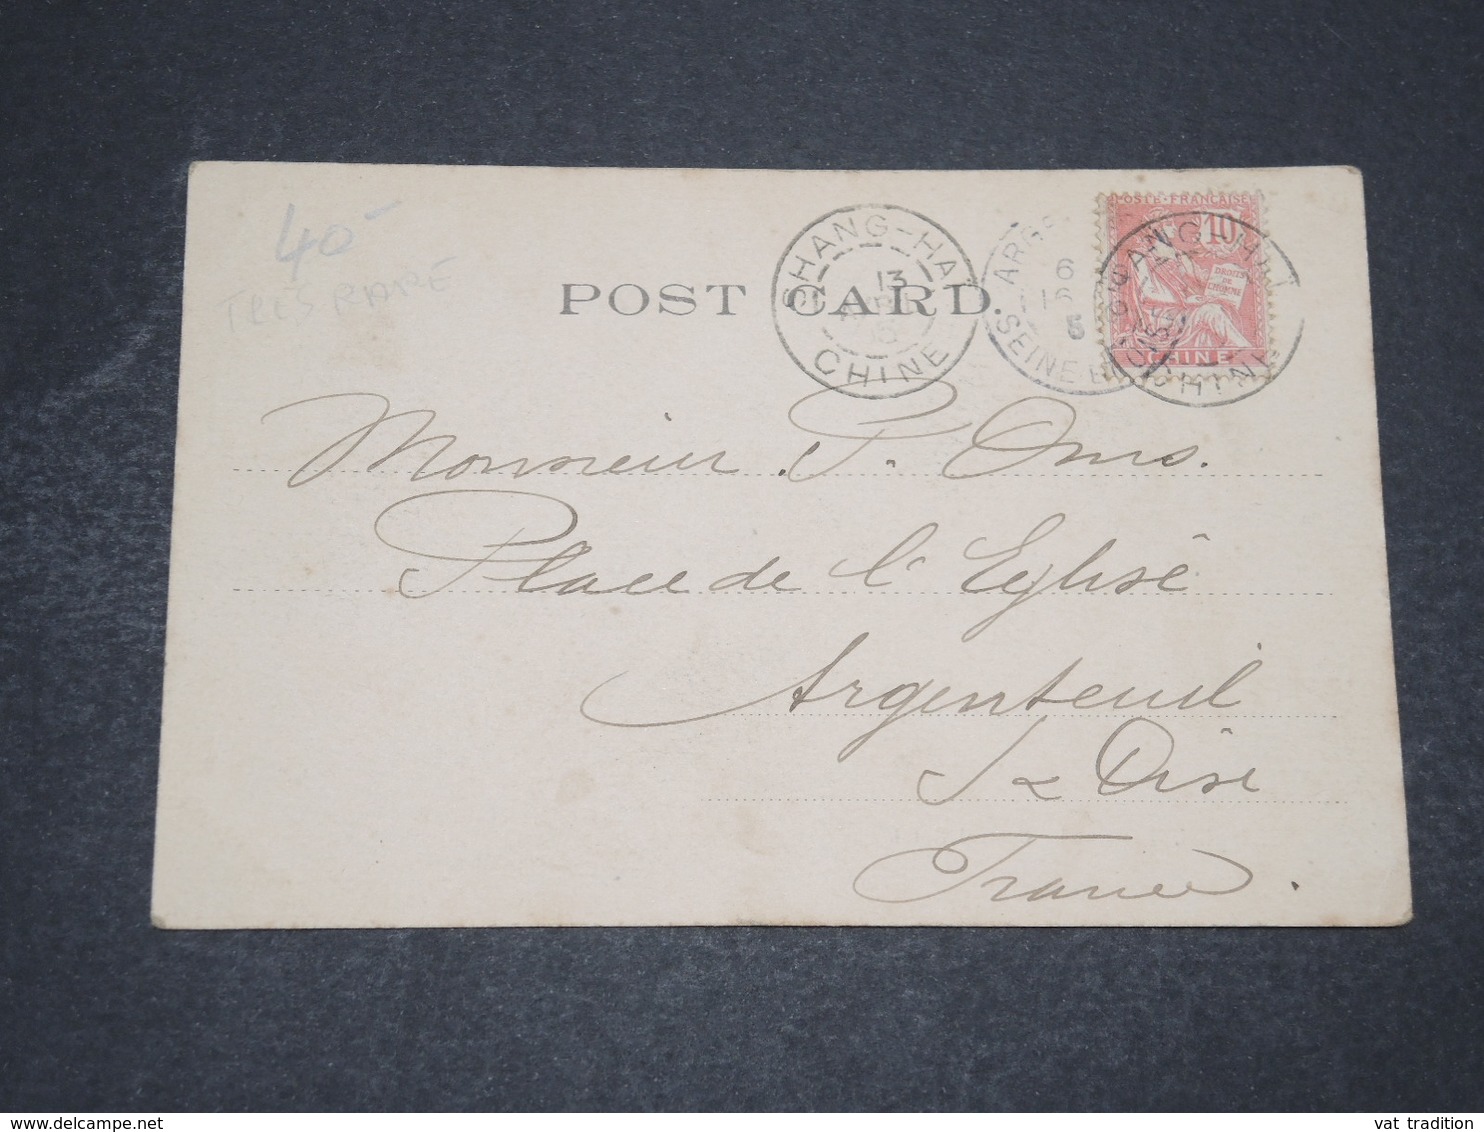 40-
TRES RARE
POST CARD.
SHANG-HAI
13
CHINE
6
5
SEINE ET OISE
POSTE FRANÇAISE
10
DROITS DE L'HOMME
CHINE
SHANG-HAI
CHINE
Monsieur P. Oms.
Place de l'Eglise
Argenteuil
S & Oise
France.
vat tradition